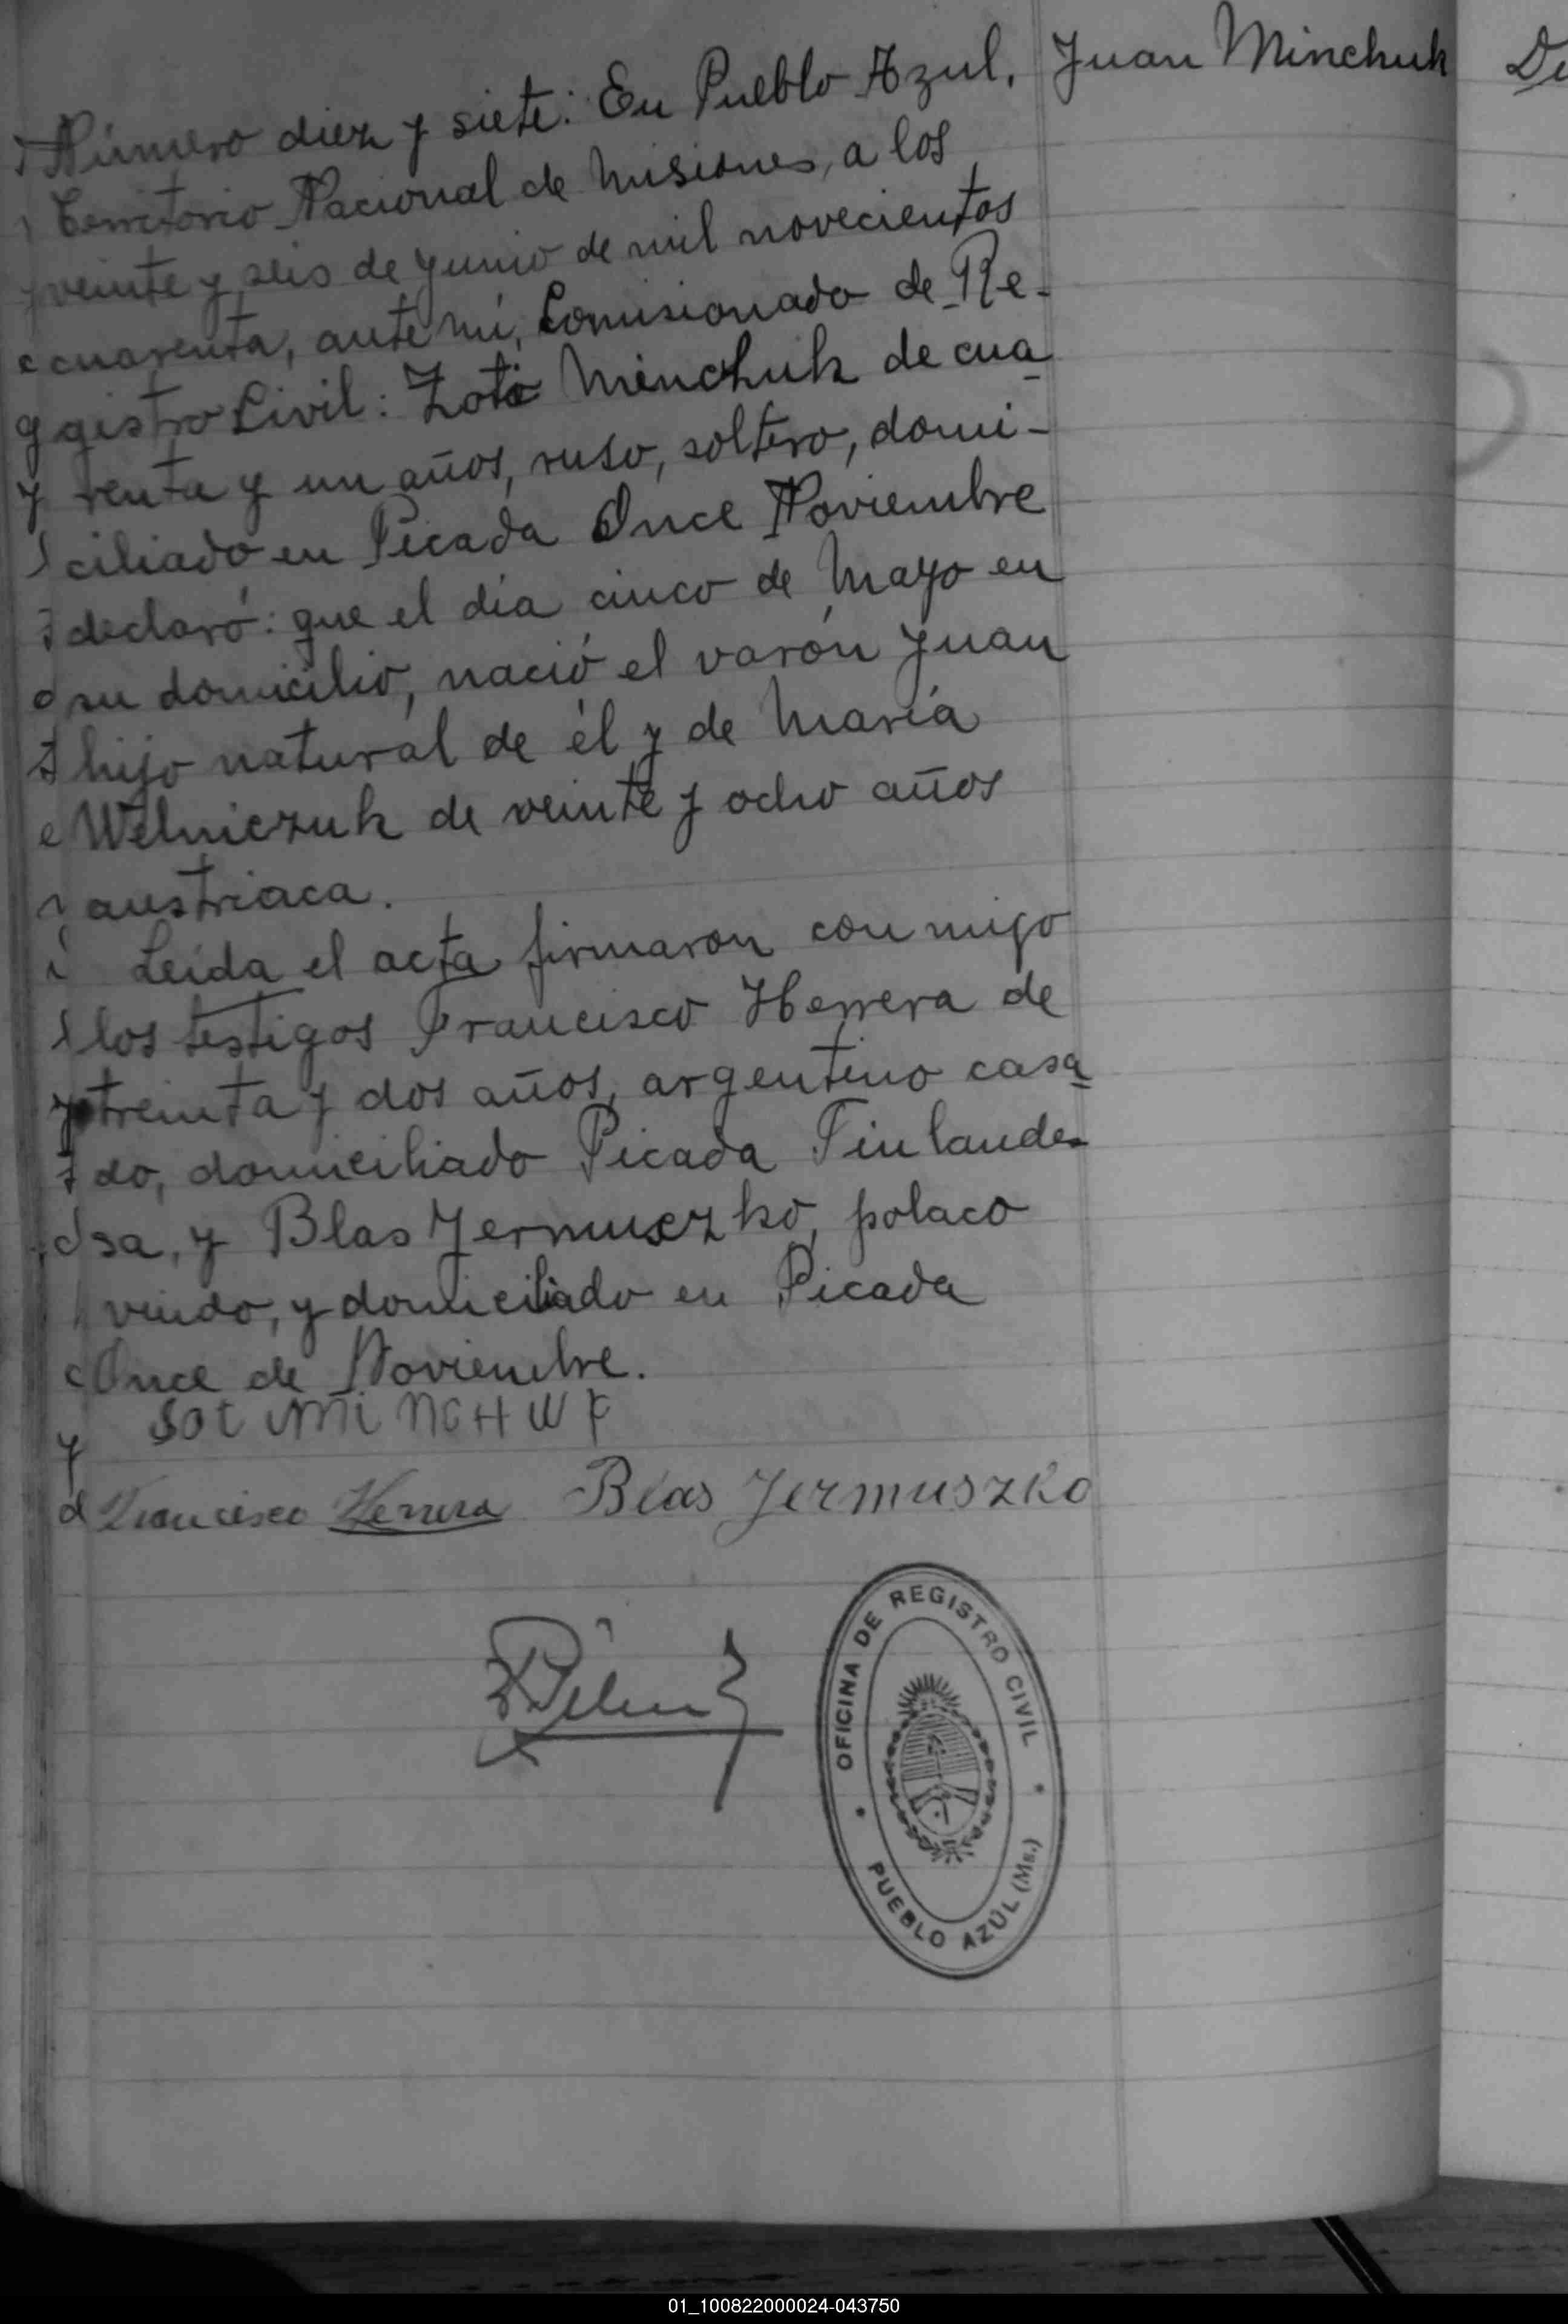 Juan Minchuk
Número diez y siete: En Pueblo Azul,
Territorio Nacional de Misiones, a los
veinte y seis de Junio de mil novecientos
cuarenta, ante mí, Comisionado de Re-
gistro Civil: Zoti Minchuk de cua
renta y un años, ruso, soltero, domi-
ciliado en Picada Once Noviembre
declaró: que el día cinco de Mayo en
su domicilio, nació el varón Juan
hijo natural de él y de María
Welniczuk de veinte y ocho años
austriaca.
Leída el acta firmaron con migo
los testigos Francisco Herrera de
treinta y dos años, argentino casa
do, domiciliado Picada Finlande-
sa, y Blas Jermuszko, polaco
viudo, y domiciliado en Picada
Once de Noviembre.
Francisco Herrera Blas Jermuszko
OFICINA DE REGISTRO CIVIL
PUEBLO AZÚL (Ms.)
01_100822000024-043750